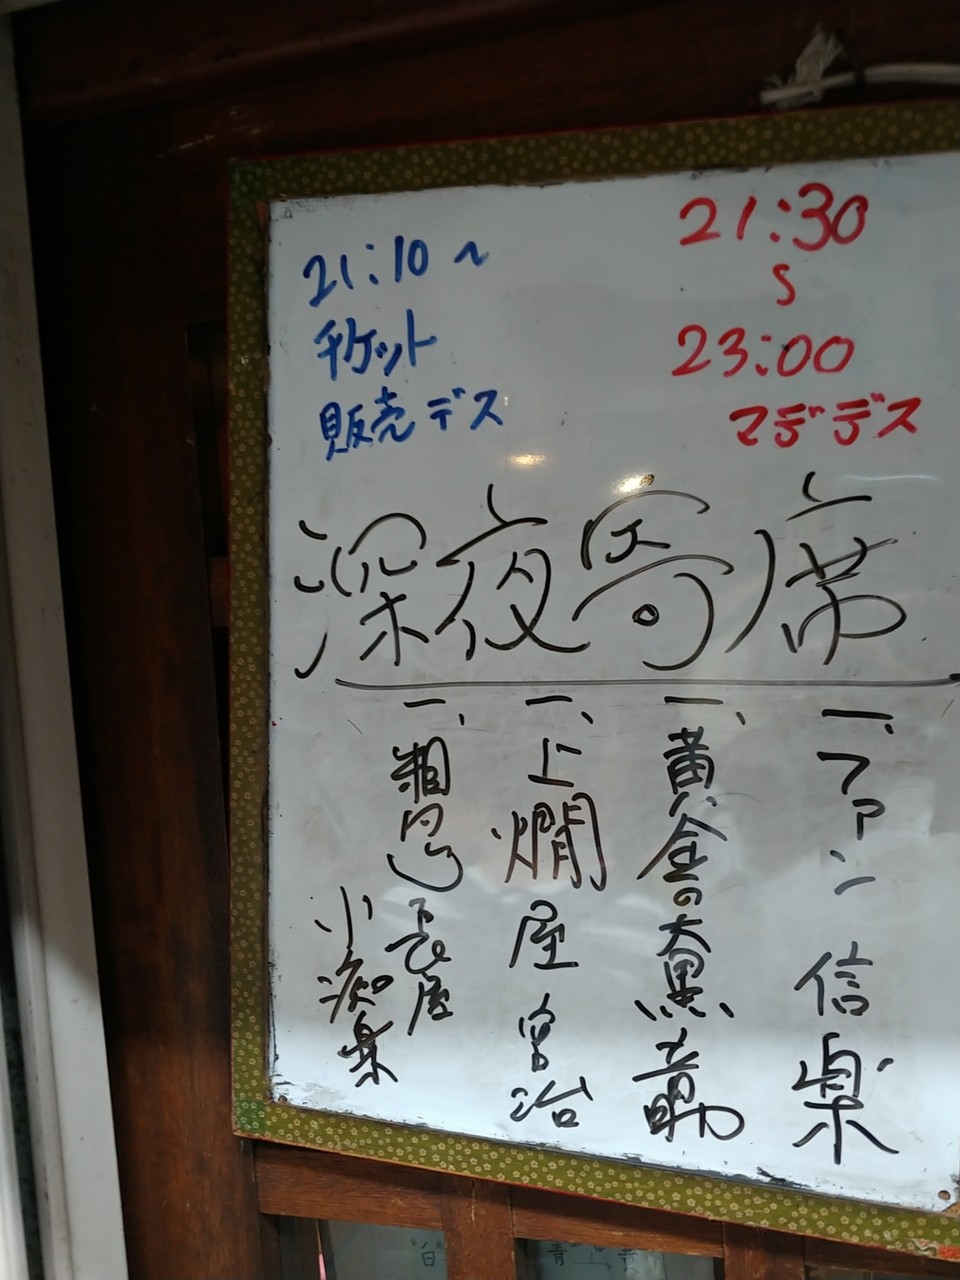 21:10~
チケット
販売デス
21:30
〜
23:00
マデデス
深夜寄席
一、ファン 信楽
一、黄金の大黒
一、上燗屋 宮治
一、粗忽長屋 小痴楽